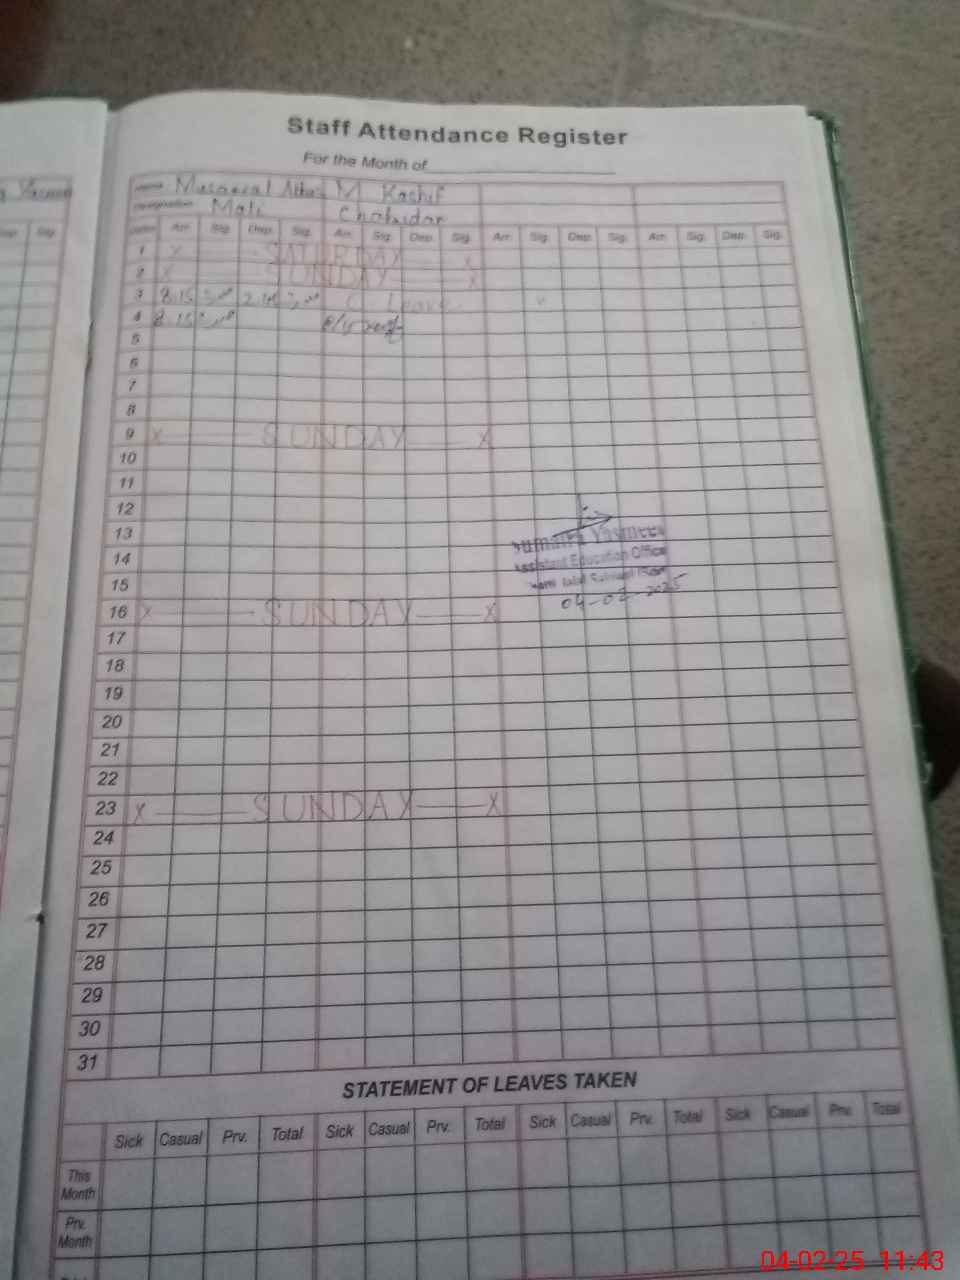 Yasmin
Dep. Sig.
Staff Attendance Register
For the Month of
Name Musawal Abbas M Kashif
Designation Mali Chokidar
Dates Arr. Sig. Dep. Sig. Arr. Sig. Dep. Sig. Arr. Sig. Dep. Sig. Arr. Sig. Dep. Sig.
1 X SATURDAY X
2 X SUNDAY X
3 8:15 C Leave
4 8:15
5
6
7
8
9 X SUNDAY X
10
11
12
13
Sumaira Yasmeen
14
Assistent Education Officer
15
04-02-2025
16 X SUNDAY X
17
18
19
20
21
22
23 X SUNDAY X
24
25
26
27
28
29
30
31
STATEMENT OF LEAVES TAKEN
Sick Casual Prv. Total Sick Casual Prv. Total Sick Casual Prv. Total Sick Casual Prv. Total
This Month
Prv. Month
04-02-25 11:43